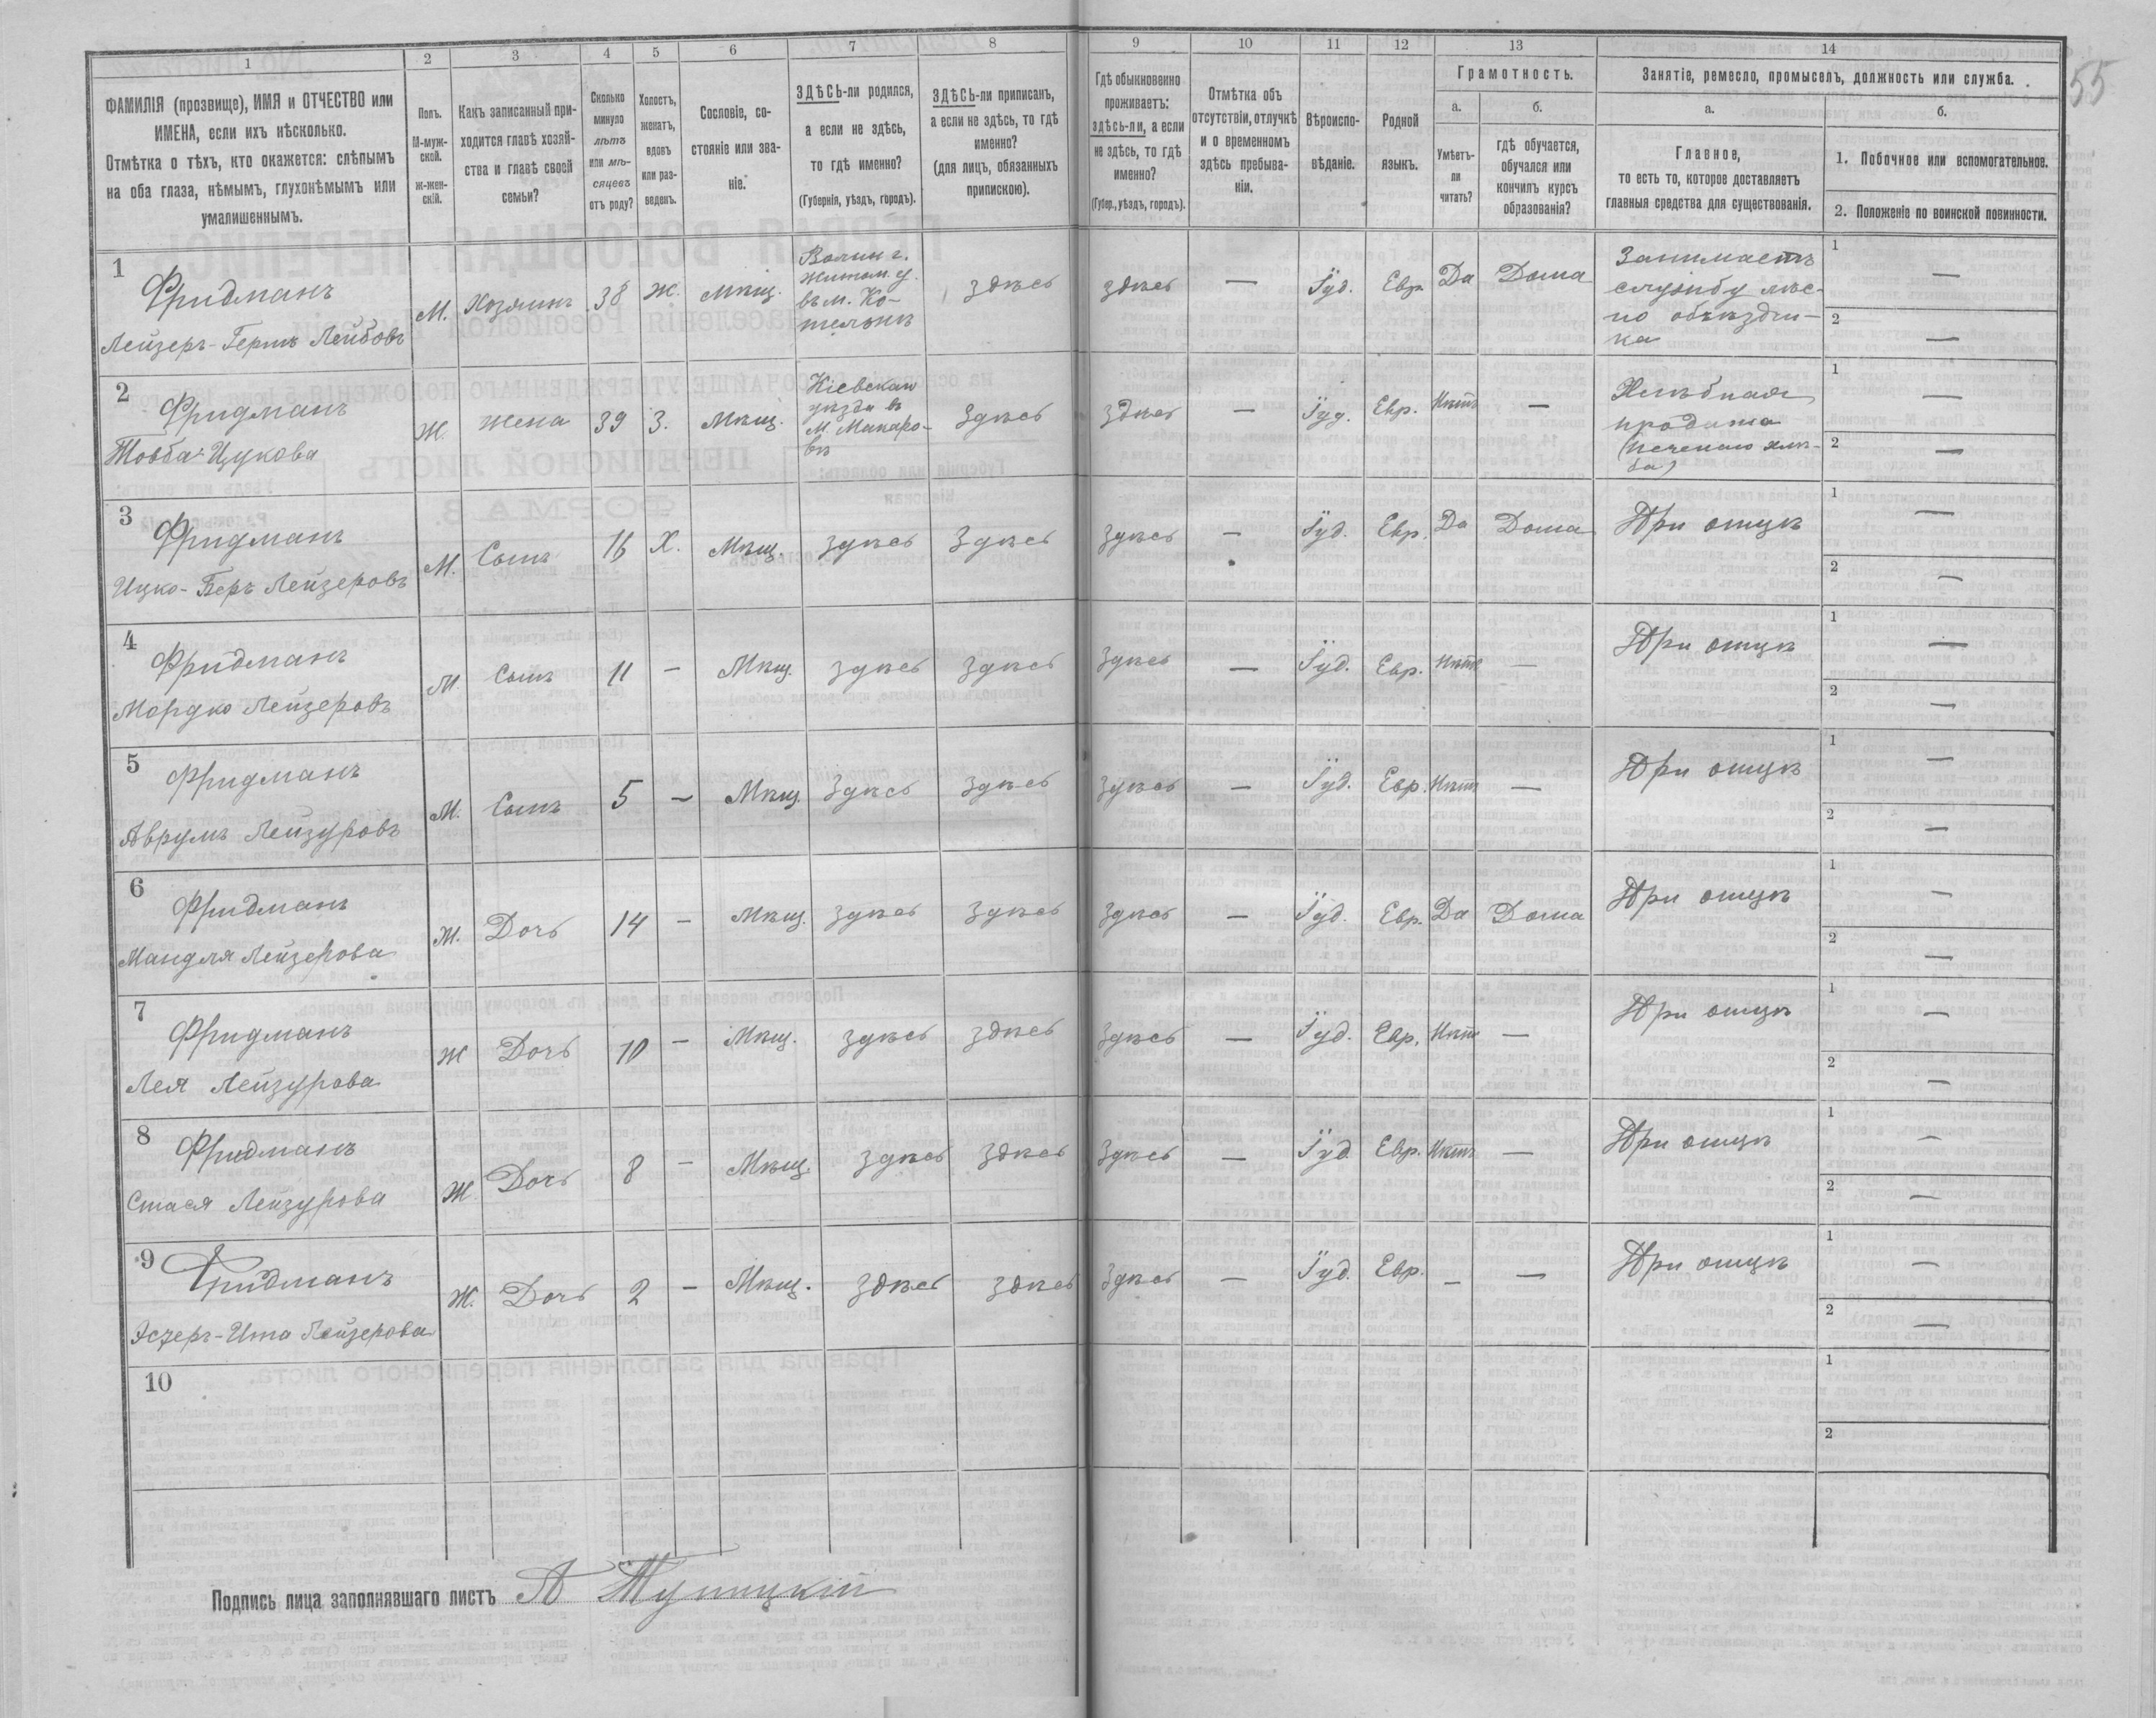 55
1 2 3 4 5 6 7 8 9 10 11 12 13 14
ФАМИЛІЯ (прозвище), ИМЯ и ОТЧЕСТВО или
ИМЕНА, если ихъ нѣсколько.
Отмѣтка о тѣхъ, кто окажется: слѣпымъ
на оба глаза, нѣмымъ, глухонѣмымъ или
умалишеннымъ.
Полъ.
М-муж-
ской.
ж-жен-
скій.
Какъ записанный при-
ходится главѣ хозяй-
ства и главѣ своей
семьи?
Сколько
минуло
лѣтъ
или мѣ-
сяцевъ
отъ роду?
Холостъ,
женатъ,
вдовъ
или раз-
веденъ.
Сословіе, со-
стояніе или зва-
ніе.
ЗДѢСЬ-ли родился,
а если не здѣсь,
то гдѣ именно?
(Губернія, уѣздъ, городъ).
ЗДѢСЬ-ли приписанъ,
а если не здѣсь, то гдѣ
именно?
(для лицъ, обязанныхъ
припискою).
Гдѣ обыкновенно
проживаетъ:
здѣсь-ли, а если
не здѣсь, то гдѣ
именно?
(Губер., уѣздъ, городъ).
Отмѣтка объ
отсутствіи, отлучкѣ
и о временномъ
здѣсь пребыва-
ніи.
Вѣроиспо-
вѣданіе.
Родной
языкъ.
Грамотность.
а.
Умѣетъ-
ли
читать?
б.
гдѣ обучается,
обучался или
кончилъ курсъ
образованія?
Занятіе, ремесло, промыселъ, должность или служба.
а.
Главное,
то есть то, которое доставляетъ
главныя средства для существованія.
б.
1. Побочное или вспомогательное.
2. Положеніе по воинской повинности.
1
Фридманъ
Лейзеръ-Герш Лейбовъ
М. Хозяинъ 38 Ж. Мѣщ.
Волын г.
Житом. у.
въ м. Ко-
тельнѣ
здѣсь здѣсь — Іуд. Евр Да Дома
Занимаетъ
службу лѣс-
но объѣздчи-
ка
1 —
2 —
2
Фридманъ
Товба Ицкова
Ж. Жена 39 З. Мѣщ.
Кіевскаго
уѣзда въ
М. Макаро-
вѣ
Здѣсь здѣсь — Іуд. Евр. Нѣтъ —
Хлѣбная
продажа
(печенаго хлѣ-
ба)
1 —
2 —
3
Фридманъ
Ицко-Беръ Лейзеровъ
М. Сынъ 16 Х. Мѣщ. здѣсь Здѣсь здѣсь — Іуд. Евр. Да Дома При отцѣ
1 —
2 —
4
Фридманъ
Мордко Лейзеровъ
М. Сынъ 11 — Мѣщ. здѣсь здѣсь здѣсь — Іуд. Евр. Нѣтъ — При отцѣ
1 —
2 —
5
Фридманъ
Аврумъ Лейзуровъ
М. Сынъ 5 — Мѣщ. здѣсь здѣсь здѣсь — Іуд. Евр. Нѣтъ — При отцѣ
1 —
2 —
6
Фридманъ
Мандля Лейзерова
Ж. Дочь 14 — Мѣщ. здѣсь здѣсь здѣсь — Іуд. Евр. Да Дома При отцѣ
1 —
2 —
7
Фридманъ
Лея Лейзурова
Ж Дочь 10 — Мѣщ. здѣсь здѣсь здѣсь — Іуд. Евр. Нѣтъ — При отцѣ
1 —
2 —
8
Фридманъ
Стася Лейзурова
Ж Дочь 8 — Мѣщ. здѣсь здѣсь здѣсь — Іуд Евр. Нѣтъ — При отцѣ
1 —
2 —
9
Фридманъ
Эстеръ-Ита Лейзерова
Ж. Дочь 2 — Мѣщ. здѣсь здѣсь здѣсь — Іуд. Евр. — — При отцѣ
1 —
2 —
10
1
2
Подпись лица заполнявшаго листъ А Тупицкій